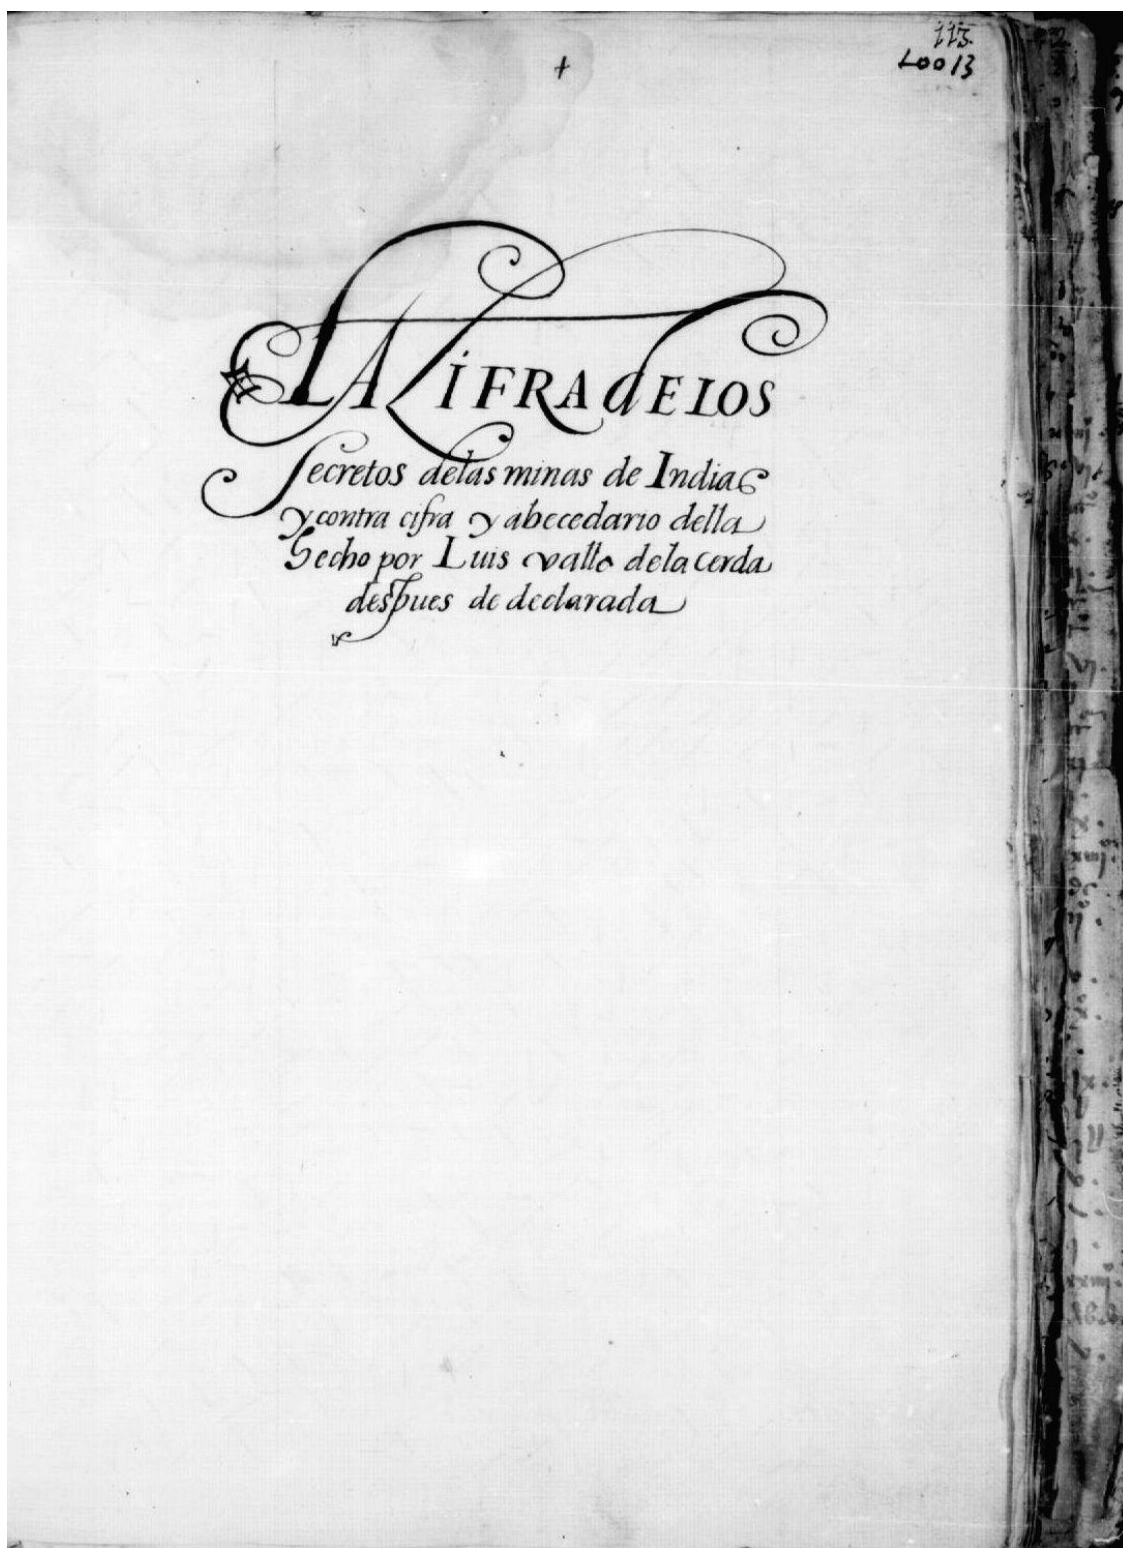 113
+
L0013
LA CIFRA dE LOS
Secretos delas minas de Indias
y contra cifra y abecedario della
Hecho por Luis valle dela cerda
despues de declarada